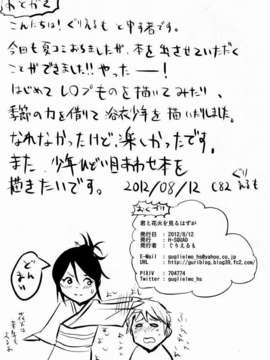 あとがき
こんにちは! ぐりえるもと申す者です。
今回も夏コミおちましたが、本を出させていただく
ことができました!! やったー!
はじめてレロプものを描いてみたり、
季節の力を借りて浴衣少年を描いたりしました。
なれなかったけど、楽しかったです。
また、少年ひどい目あわせ本を
描きたいです。 2012/08/12 C82 ぐりえるも
おくづけ
君と花火を見るはずが
発行日 : 2012/8/12
発行 : H-SQUAD
発行者 : ぐりえるも
E-Mail : guglielmo_hs@yahoo.co.jp
URL : http://guriblog.blog39.fc2.com/
PIXIV : 704774
Twitter : guglielmo_hs